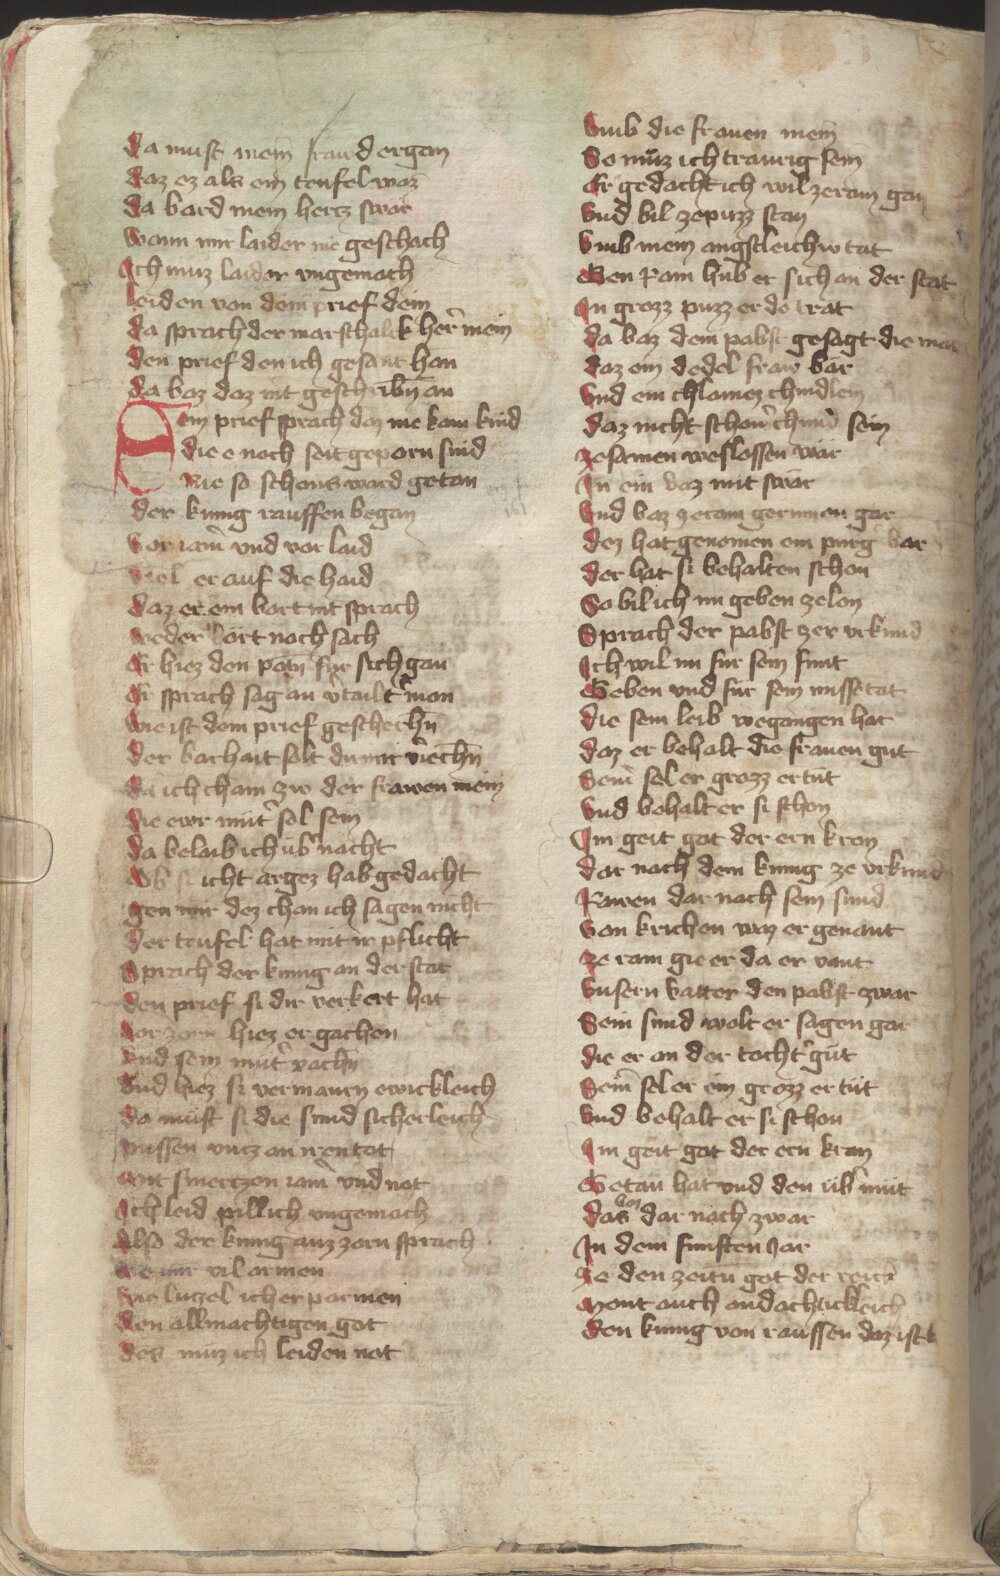 da must mein fraw d ergan
daz ez als ein teufel waz
da bard mein hertz swar
wann mir laider nie geschach
Ich muz laider vngemach
leiden von dem prief dein
da sprach der marschalk her mein
den prief den ich gesant han
da baz daz nit geschribn an
Dein prief sprach daz nie kain kind
die e noch seit geporn sind
Nie so schons ward getan
der kunig rauffen began
vor iam̄ vnd vor laid
viel er auf die haid
daz er ein bort nit sprach
weder hort noch sach
Er hiez den potn fur sich gan
Er sprach sag an vtailt man
wie ist dem prief geschechn
der barhait solt du mir viechn
da ich cham zw der frawen mein
die ewr mut sol sein
da belaib ich ub nacht
Ob si icht argez hab gedacht
gen mir dez chan ich sagen nicht
der teufel hat mit ir pflicht
Sprach der kunig an der stat
den prief si dir verkert hat
vor zorn hiez er gachen
vnd sein mut vachn
vnd hiez si vermaurn ewickleich
da must si die sund sicherleich
pussen vntz an iren tot
mit smertzen iam̄ vnd not
Ich leid pillich vngemach
Also der kunig auz zorn sprach
we mir vil armen
wie lutzel ich erparmen
den allmachtigen got
des muz ich leiden not
Vmb die frauen mein
So muz ich traurig sein
Er gedacht ich wil ze ram gan
vnd bil ze puzz stan
Vmb mein angstleichw tat
Gen Ram hub er sich an der stat
In grozz puzz er do trat
da baz dem pabst gesagt die
daz ein dedel fraw bar
Vnd ein chlainez chindlein
daz nicht schoner chund sein
zesamen weslossen wär
In ein vaz mit swär
vnd baz ze ram gerunnen gar
dez hat genomen ein purg bar
der hat si behalten schon
So bil ich im geben ze lon
Sprach der pabst zer vrkund
Ich wil im fur sein sunt
Geben vnd fur sein missetat
die sein leib wegangen hat
daz er behalt die frauen gut
Sein sel er grozz er tut
vnd behalt er si schon
Im geit got der ern kron
dar nach dem kunig ze vrkund
Rawen dar nach sein sund
von krichen waz er genant
ze ram gie er da er vant
vnsern vatter den pabst zwar
Sein sund wolt er sagen gar
die er an der tocht gut
Sein sel er ein grozz er tut
vnd behalt er si schon
Im geit got der ern kron
Getan hat vnd den ub mut
das von dar nach zwar
In dem funften Jar
ze den zeitn got der reich
Mont auch andachtickleich
den kunig von raussen daz ist